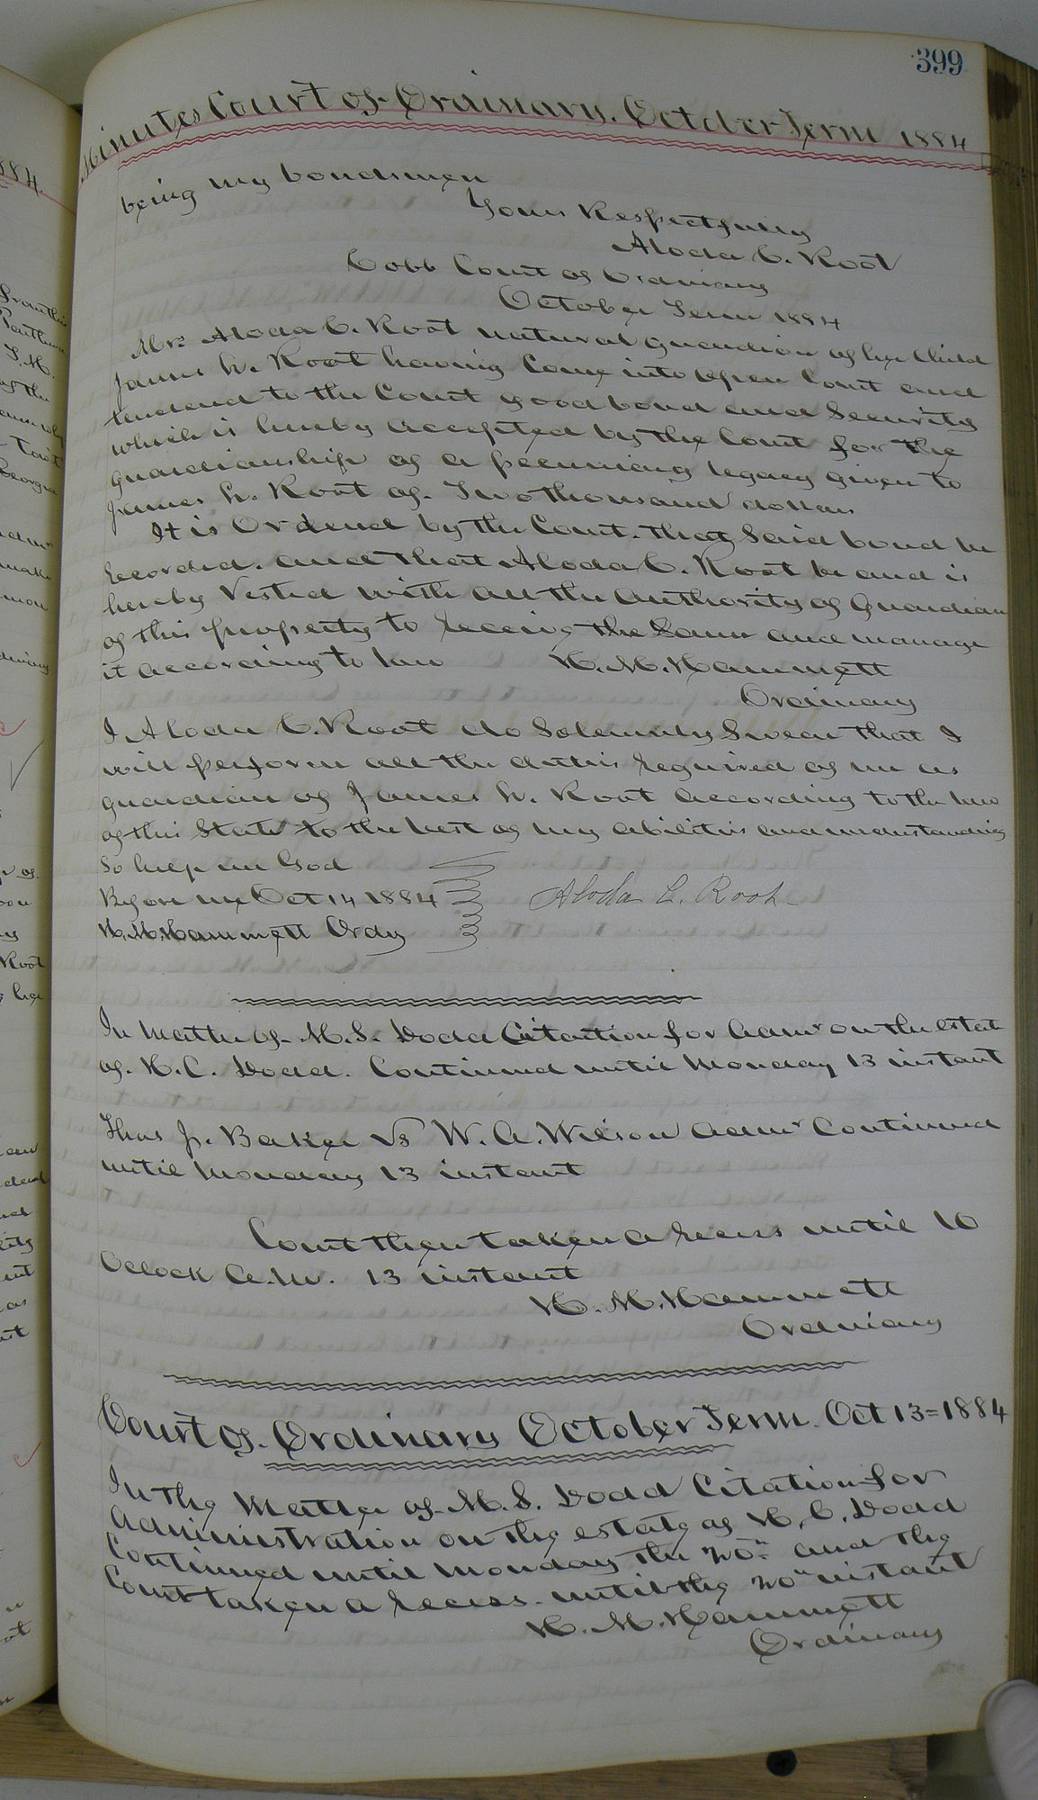 399
Minutes Court of Ordinary. October Term 1884
being my bondsmen
Yours Respectfully
Aloda C. Root
Cobb Court of Ordinary
October Term 1884
Mrs Aloda C. Root natural guardian of her Child
James W. Root having Come into open Court and
tendered to the Court good bond and Security
which is hereby accepted by the Court for the
guardianship of a pecuniary legacy given to
James W. Root of Two thousand dollars
It is Ordered by the Court. that Said bond be
recorded. and that Aloda C. Root be and is
hereby Vested with all the authority of guardian
of this property to receive the Same and manage
it according to law
H. M. Hammett
Ordinary
I Aloda C. Root do Solemnly Swear that I
will perform all the duties required of me as
guardian of James W. Root according to the law
of this State to the best of my abilities and understanding
So help me God
Before me Oct 14 1884
Aloda C. Root
H. M. Hammett Ordy
In Matter of M. S. Dodd Citation for Admr on the estate
of. H. C. Dodd. Continued until Monday 13 instant
Thos J. Baker Vs W. A. Wilson Admr Continued
until Monday 13 instant
Court then taken a recess until 10
Oclock A.M. 13 instant
H. M. Hammett
Ordinary
Court of Ordinary October Term. Oct 13=1884
In the Matter of M. S. Dodd Citation for
Administration on the estate of H. C. Dodd
Continued until Monday the 20th and the
Court taken a recess until the 20" instant
H. M. Hammett
Ordinary